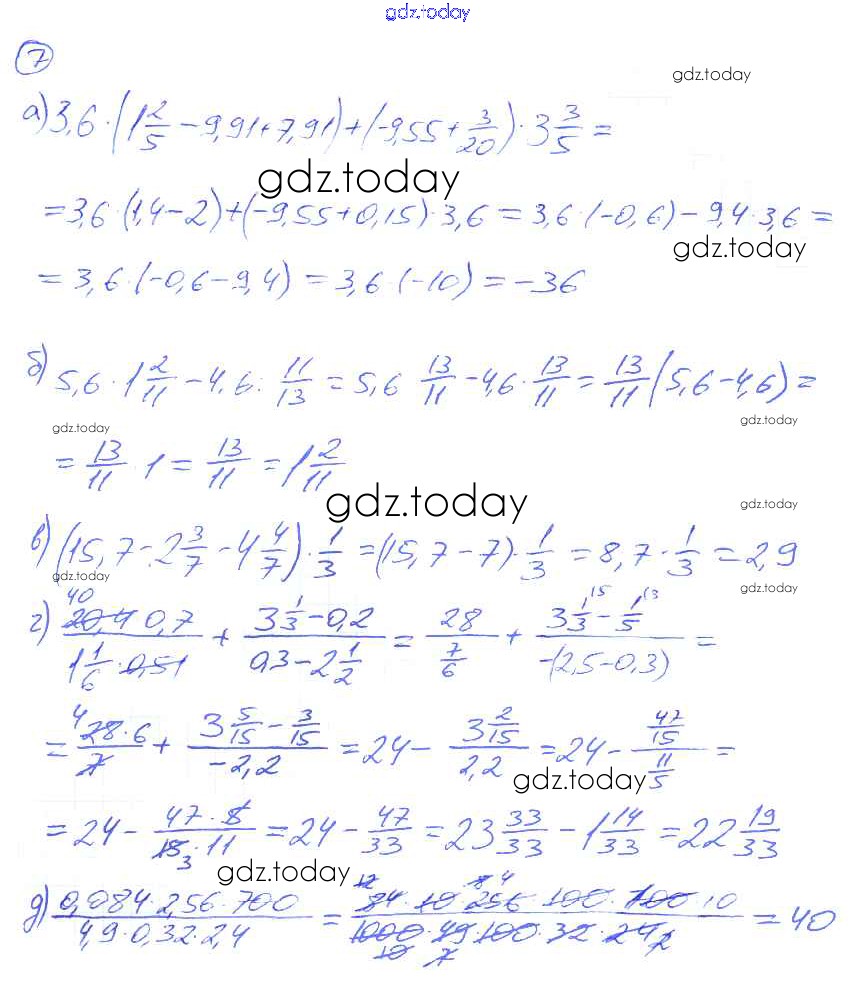 gdz.today
7
gdz.today
а) 3,6 · (1 2/5 − 9,91 + 7,91) + (−9,55 + 3/20) · 3 3/5 =
gdz.today
= 3,6 · (1,4 − 2) + (−9,55 + 0,15) · 3,6 = 3,6 · (−0,6) − 9,4 · 3,6 =
gdz.today
= 3,6 · (−0,6 − 9,4) = 3,6 · (−10) = −36
б) 5,6 · 1 2/11 − 4,6 : 11/13 = 5,6 13/11 − 4,6 · 13/11 = 13/11 (5,6 − 4,6) =
gdz.today gdz.today
= 13/11 · 1 = 13/11 = 1 2/11
gdz.today gdz.today
в) (15,7 − 2 3/7 − 4 4/7) · 1/3 = (15,7 − 7) · 1/3 = 8,7 · 1/3 = 2,9
gdz.today gdz.today
г) 40 20,4 0,7 / 1 1/6 · 0,51 + 3 1/3 − 0,2 / 0,3 − 2 1/2 = 28 / 7/6 + 3 1/3 15 − 1/5 13 / −(2,5 − 0,3) =
= 4 28 · 6 / 7 + 3 5/15 − 3/15 / −2,2 = 24 − 3 2/15 / 2,2 = 24 − 47/15 / 11/5 =
gdz.today
= 24 − 47 · 5 / 15 3 · 11 = 24 − 47/33 = 23 33/33 − 1 14/33 = 22 19/33
gdz.today
д) 0,084 · 2,56 · 700 / 4,9 · 0,32 · 2,4 = 12 84 · 10 · 8 4 256 · 100 · 100 · 10 / 1000 10 · 49 7 · 100 · 32 · 24 2 = 40